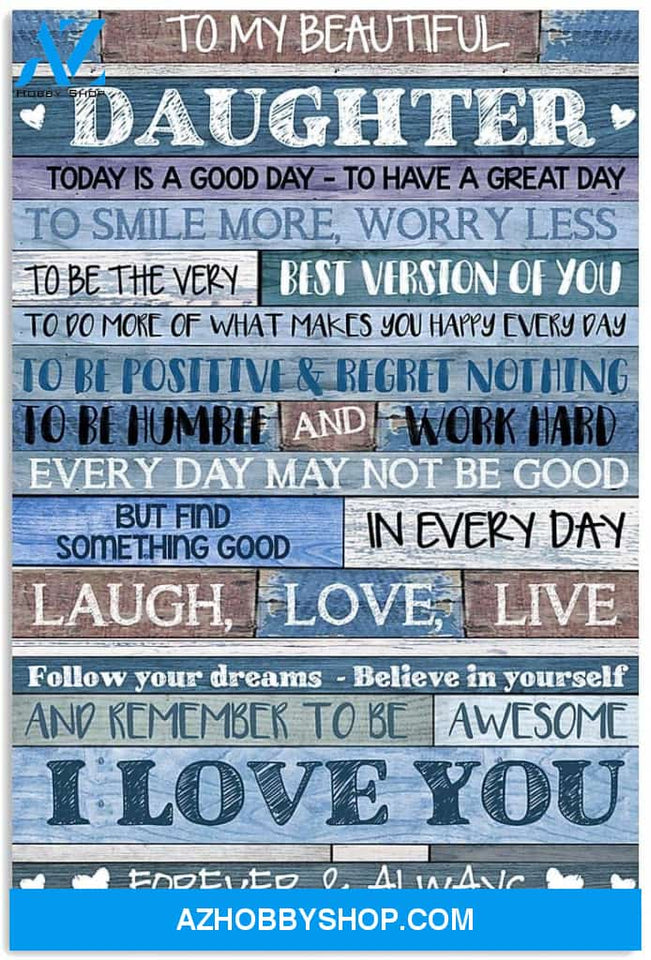 TO MY BEAUTIFUL
AZ
HOBBY SHOP
DAUGHTER
TODAY IS A GOOD DAY - TO HAVE A GREAT DAY
TO SMILE MORE, WORRY LESS
TO BE THE VERY BEST VERSION OF YOU
TO DO MORE OF WHAT MAKES YOU HAPPY EVERY DAY
TO BE POSITIVE & REGRET NOTHING
TO BE HUMBLE AND WORK HARD
EVERY DAY MAY NOT BE GOOD
BUT FIND
SOMETHING GOOD
IN EVERY DAY
LAUGH, LOVE, LIVE
Follow your dreams - Believe in yourself
AND REMEMBER TO BE AWESOME
I LOVE YOU
FOREVER & ALWAYS
AZHOBBYSHOP.COM